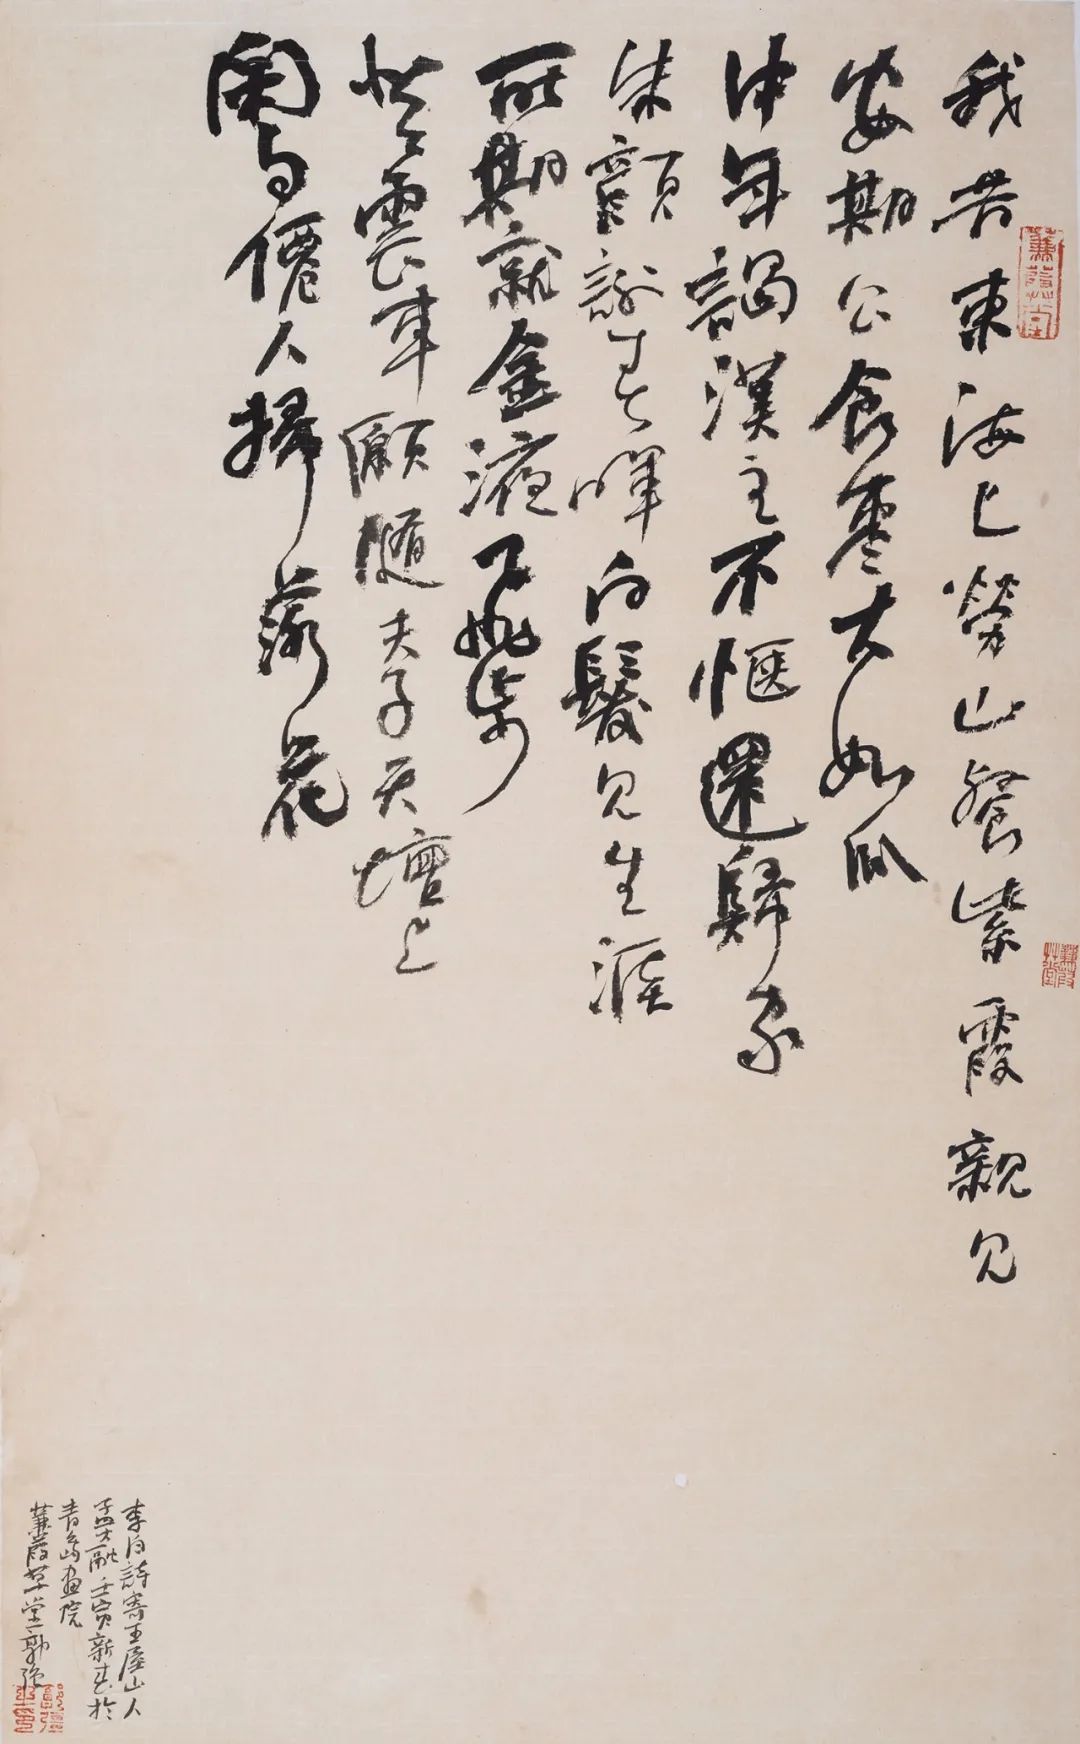 我昔東海上勞山餐紫霞親見
安期公食棗大如瓜
中年謁漢主不愜還歸家
朱顏謝春暉白髮見生涯
所期就金液飛步
登雲車願隨夫子天壇上
閑与僊人掃落花
李白詩寄王屋山人
孟大融壬寅新春於
青島画院
蒹葭草堂郭強
蒹葭草堂
蒹葭草堂